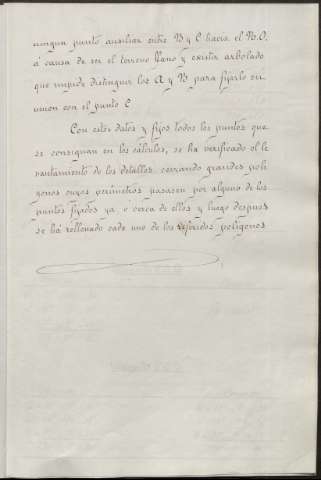 ningun punto auxiliar entre B y C hacia el N.O,
á causa de ser el terreno llano y existir arbolado
que impide distinguir los A y B para fijarlo en
union con el punto C
Con estos datos y fijos todos los puntos que
se consignan en los cálculos, se ha verificado el le
vantamiento de los detalles cerrando grandes polí
gonos cuyos perímetros pasasen por alguno de los
puntos fijados ya, ó cerca de ellos y luego despues
se há rellenado cada uno de los referidos polígonos